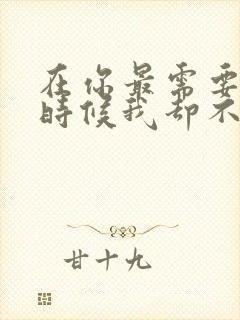 在你最需要
时候我却不
甘十九